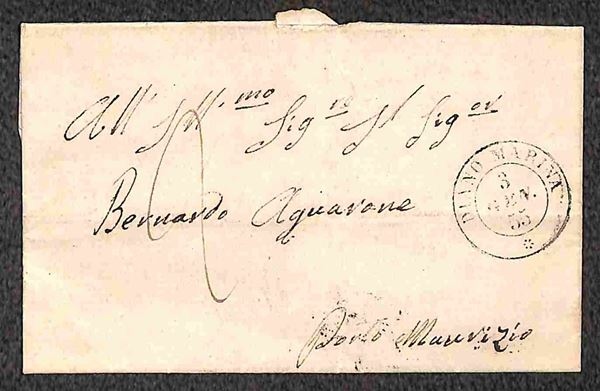 All' Ill.mo Sig.re Il Sig.or
Bernardo Aquarone
Porto Maurizio
DIANO MARINA
3
GEN.
55
*
2